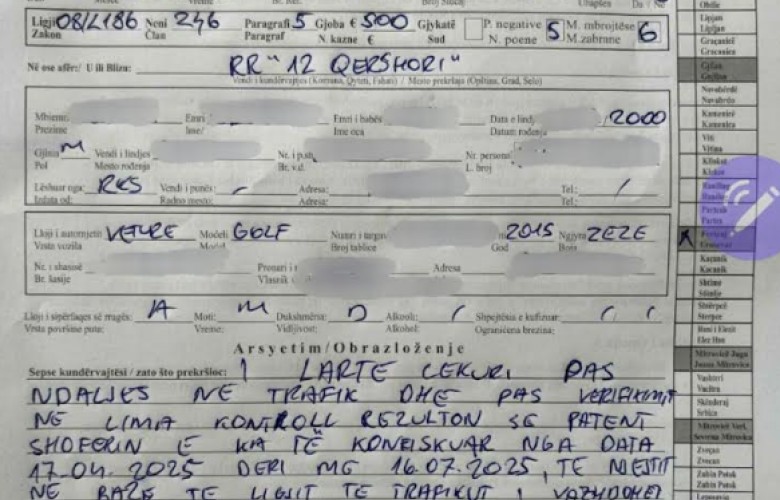 Ligji 08/L186 Neni 246 Paragrafi 5 Gjoba € 500 Gjykatë P. negative 5 M. mbrojtëse 6
Zakon Član Paragraf N. kazne € Sud N. poene M. zabrane
Në ose afër: / U ili Blizu: RR "12 QERSHORI"
Vendi i kundërvajtjes (Komuna, Qyteti, Fshati) / Mesto prekršaja (Opština, Grad, Selo)
Mbiemri Emri Emri i babës Data e lindj 2000
Prezime Ime/ Ime oca Datum rođenja
Gjinia M Vendi i lindjes Nr. i pash Nr. persona
Pol Mesto rođenja Br. L. broj
Lëshuar nga: RKS Vendi i punës: - Adresa: Tel: /
Izdata od: Radno mesto: Adresa: Tel:
Lloji i automjetit VETURE Modeli GOLF Numri i targave 2015 Ngjyra ZEZE
Vrsta vozila Model Broj tablice God Boja
Nr. i shasisë Pronari i Adresa
Br. šasije Vlasnik
Lloji i sipërfaqes së rrugës: A Moti: M Dukshmëria: D Alkooli: / Shpejtësia e kufizuar / /
Vrsta površine puta: Vreme: Vidljivost: Alkohol: Ograničena brzina:
Arsyetim/Obrazloženje
Sepse kundërvajtësi / zato što prekršioc: I LARTE CEKURI PAS
NDALJES NE TRAFIK DHE PAS VERIFIKIMIT
NE LIMA KONTROLL REZULTON SE PATENT
SHOFERIN E KA TË KONFISKUAR NGA DATA
17.04.2025 DERI ME 16.07.2025, TE NJEJTIT
NE BAZE TE LIGJIT TE TRAFIKUT I VAZHDOHET
Obiliq
Lipjan
Lipljan
Graçanicë
Gračanica
Gjilan
Gnjilane
Novobërdë
Novobrdo
Kamenicë
Kamenica
Viti
Vitina
Kllokot
Klokot
Ranillug
Partesh
Parteš
X Ferizaj
Uroševac
Kaçanik
Kačanik
Shtime
Štimlje
Shtërpcë
Štrpce
Hani i Elezit
Elez Han
Mitrovicë Jugu
Južna Mitrovica
Vushtrri
Vučitrn
Skënderaj
Srbica
Mitrovicë Veri.
Severna Mitrovica
Zveçan
Zvečan
Zubin Potok
Zubin Potok
Leposaviq